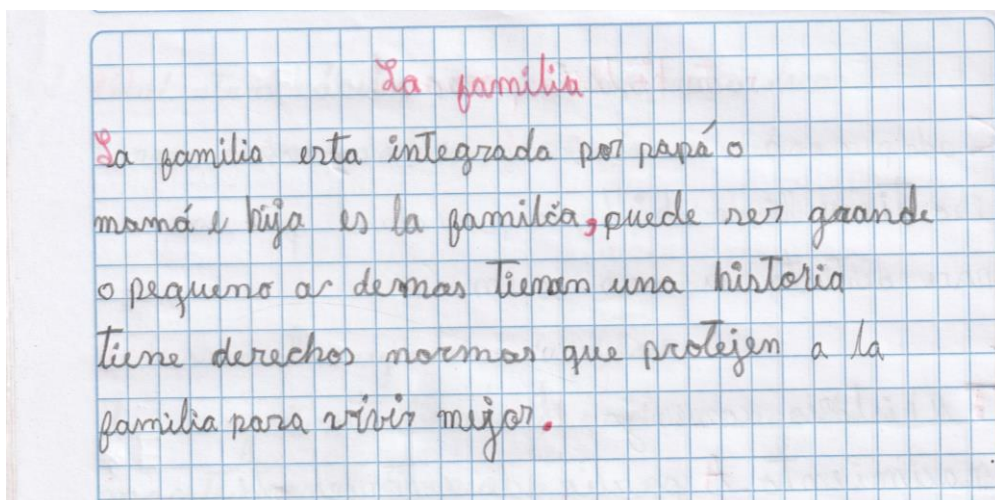 La familia
La familia esta integrada por papá o
mamá e hija es la familia, puede ser grande
o pequeno a demas tienen una historia
tiene derechos normas que protejen a la
familia para vivir mejor.